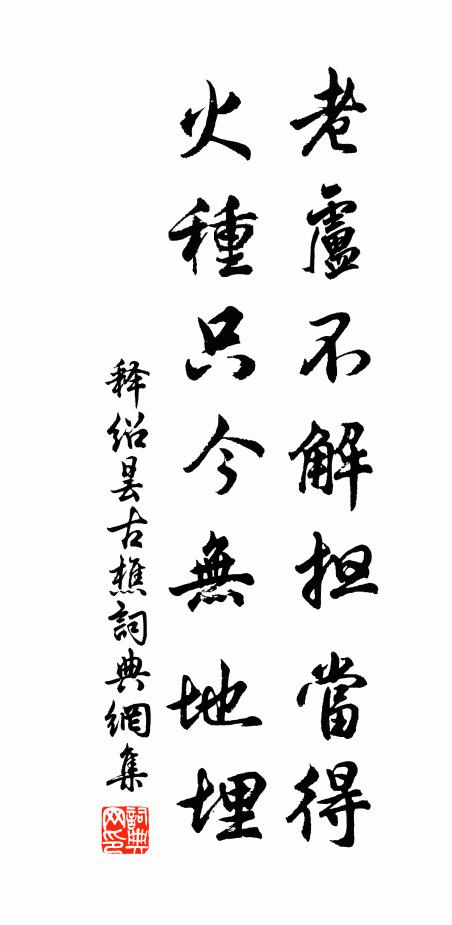 老廬不解担當得
火種只今無地埋
释绍昙古樵詞典網集
詞典
网印